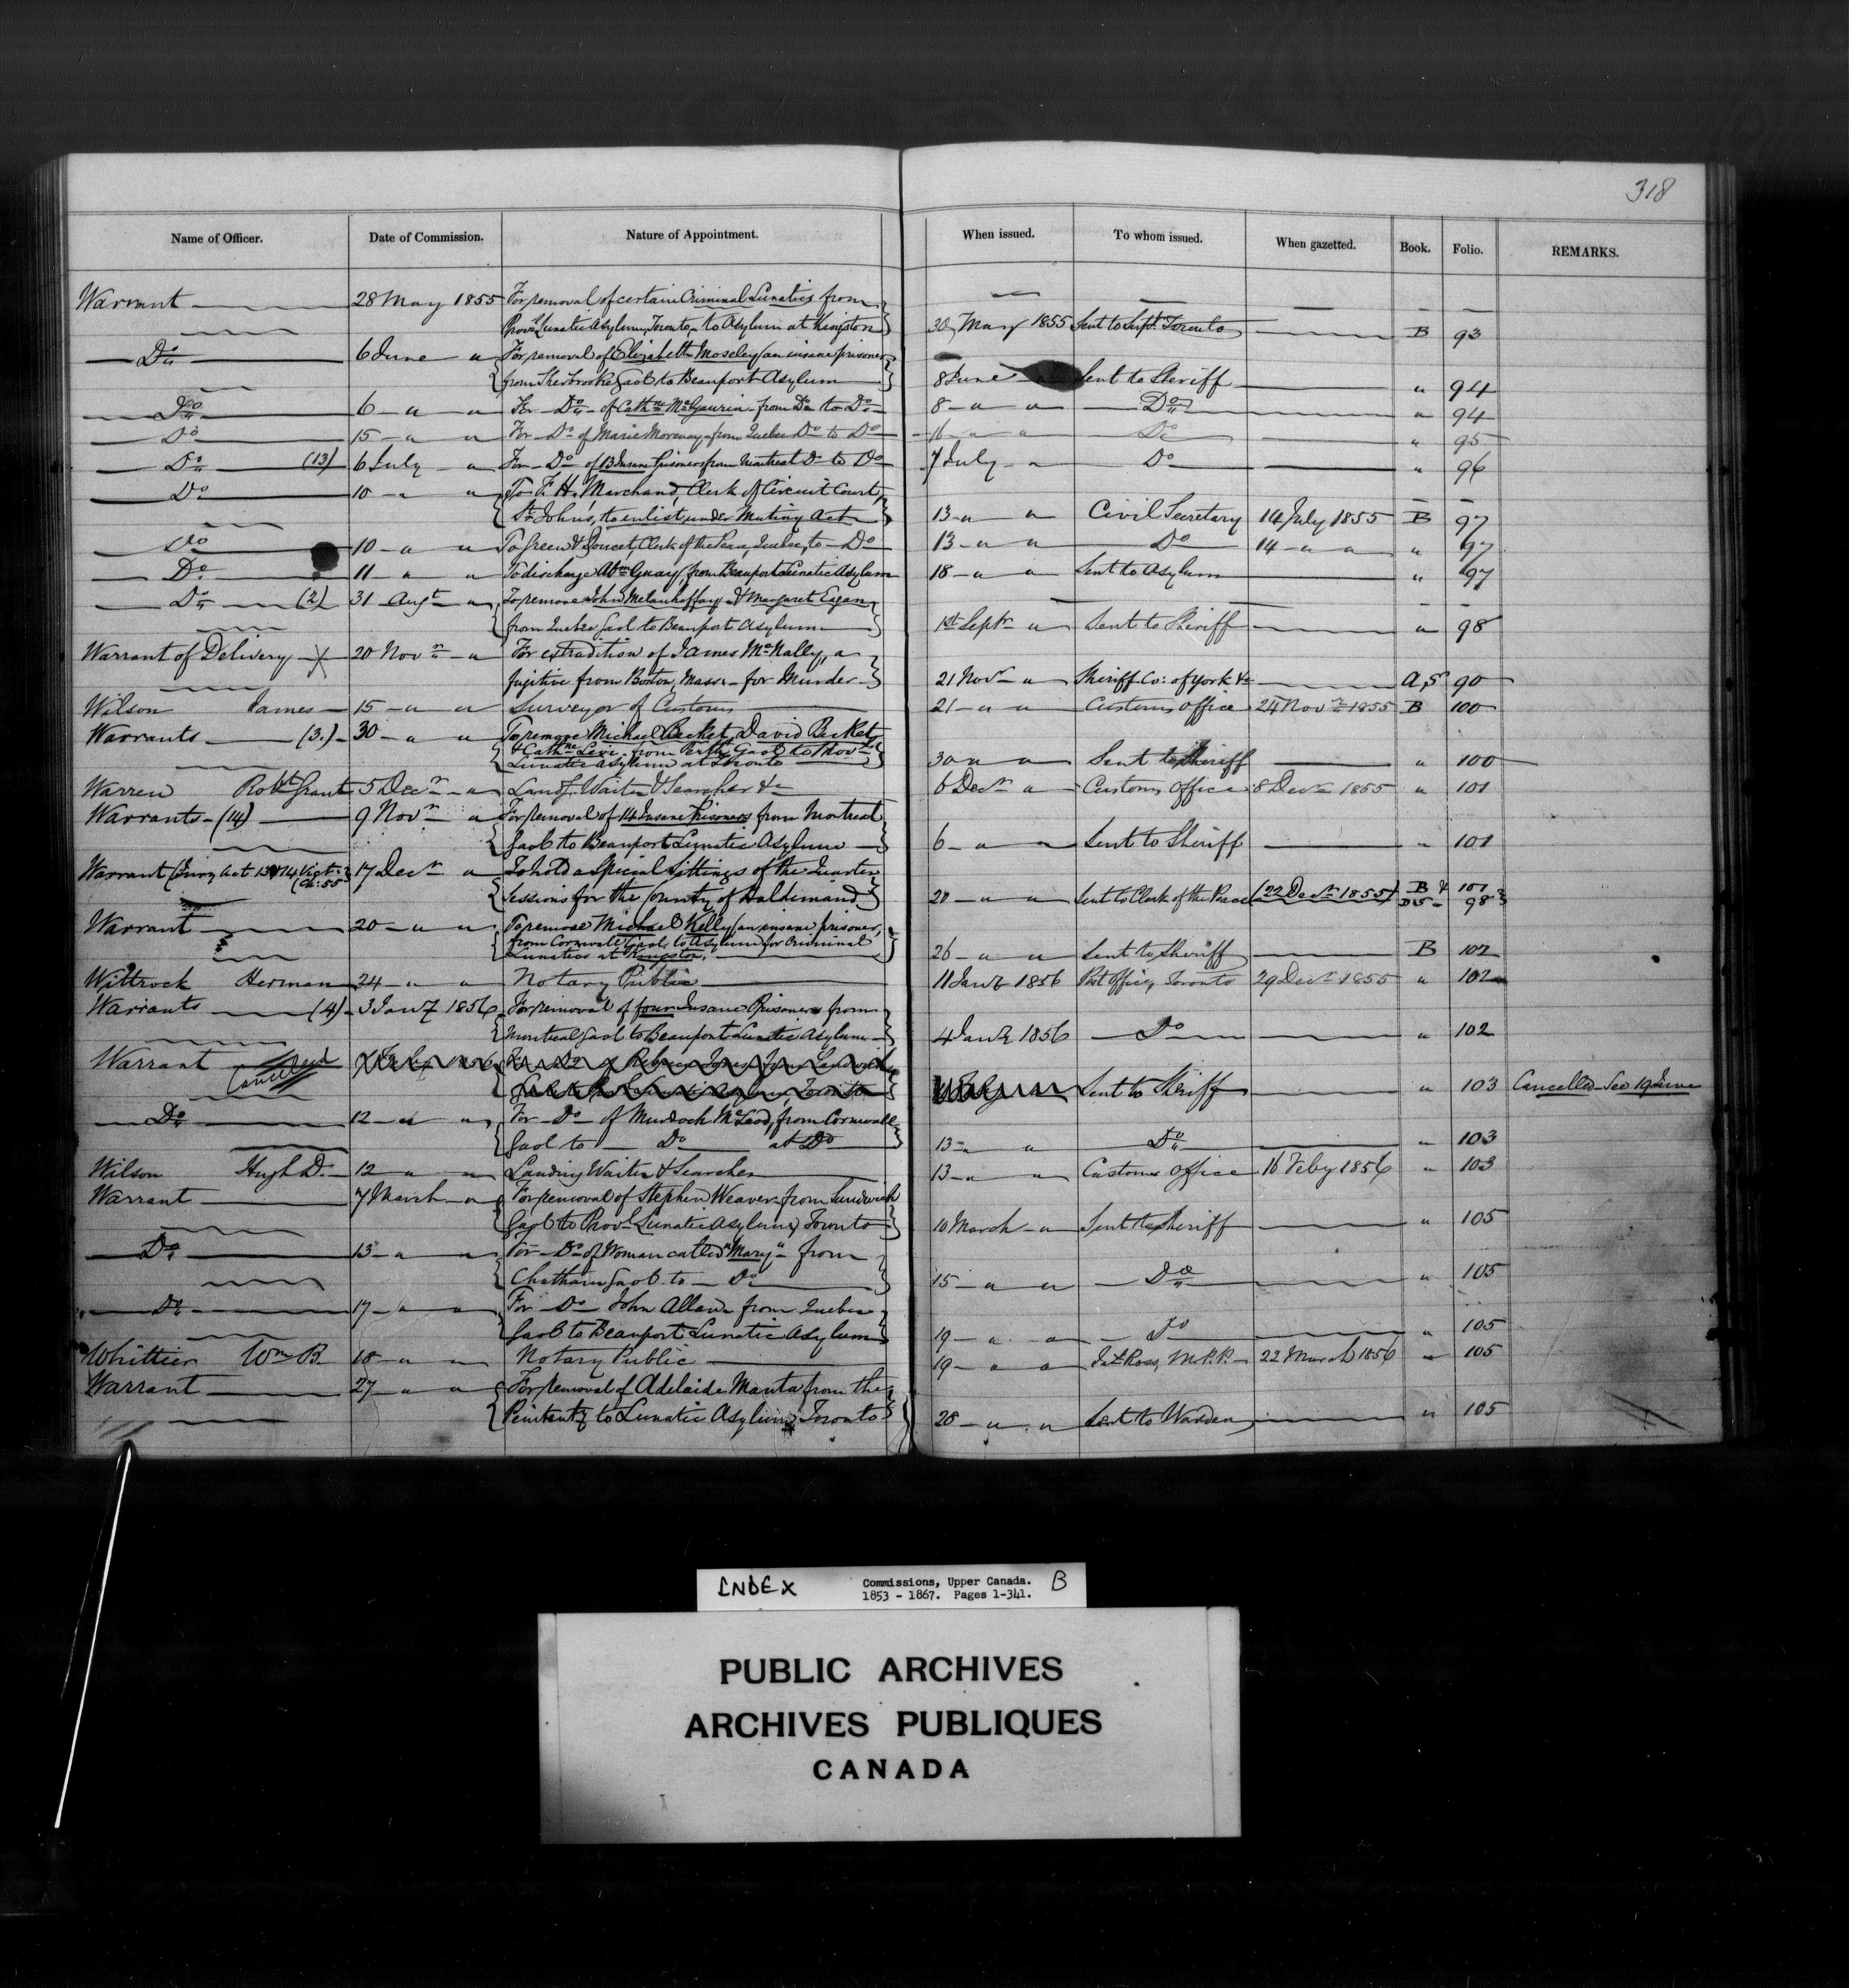 318
Name of Officer. Date of Commission. Nature of Appointment. When issued. To whom issued. When gazetted. Book. Folio. REMARKS.
Warrant 28 May 1855 For removal of certain Criminal Lunatics from
Provl Lunatic Asylum, Toronto to Asylum at Kingston 30 May 1855 Sent to Supt. Toronto B 93
Do 6 June " For removal of Elizabeth Moseley (an insane prisoner
from Sherbrooke Gaol to Beauport Asylum 8 June " Sent to Sheriff " 94
Do 6 " " For Do of Cathne McGaurin from Do to Do 8 " " Do " 94
Do 15 " " For Do of Marie Morency from Quebec Do to Do 16 " " Do " 95
Do (13) 6 July " For Do of 13 Insane Prisoners from Montreal Do to Do 7 July " Do " 96
Do 10 " " To F. H. Marchand, Clerk of Circuit Court,
St. Johns, to enlist under Mutiny Act 13 " " Civil Secretary 14 July 1855 B 97
Do 10 " " To Green & Doucet, Clerk of the Peace, Quebec, to Do 13 " " Do 14 " " " 97
Do 11 " " To discharge Abm Guay, from Beauport Lunatic Asylum 18 " " Sent to Asylum " 97
Do (2) 31 Augt " To remove John & Margaret Eagan
from Quebec Gaol to Beauport Asylum 1st Septr " Sent to Sheriff " 98
Warrant of Delivery X 20 Novr " For extradition of James McNally, a
fugitive from Boston, Massr for Murder 21 Novr " Sheriff Co: of York &c A,5 90
Wilson James 15 " " Surveyor of Customs 21 " " Customs Office 24 Novr 1855 B 100
Warrants (3.) 30 " " To remove Michael Becket, David Becket,
& Cathne Levi from Perth Gaol to Provl
Lunatic Asylum at Toronto 30 " " Sent to Sheriff " 100
Warren Robt Grant 5 Decr " Landg. Waiter & Searcher &c 6 Decr " Customs Office 8 Decr 1855 " 101
Warrants (14) 9 Novr " For removal of 14 Insane Prisoners from Montreal
Gaol to Beauport Lunatic Asylum 6 " " Sent to Sheriff " 101
Warrant (Jury Act 13 & 14 Vict:
Ch: 55 17 Decr " To hold a Special Sittings of the Quarter
Sessions for the County of Haldimand 20 " " Sent to Clerk of the Peace (22 Decr 1855) B & 101
98
Warrant 20 " " To remove Michael Kelly (an insane prisoner,
from Cornwall Gaol, to Asylum for Criminal
Lunatics at Kingston. 26 " " Sent to Sheriff B 102
Wittrock Herman 24 " " Notary Public 11 Jany 1856 Post Office, Toronto 29 Decr 1855 " 102
Warrants (4) 3 Jany 1856 For removal of four Insane Prisoners from
Montreal Gaol to Beauport Lunatic Asylum 4 Jany 1856 Do " 102
Warrant Cancelled
Sent to Sheriff " 103 Cancelled See 19 June
Do 12 " " For Do of Murdock McLeod, from Cornwall
Gaol to Do at Do 13 " " Do " 103
Wilson Hugh D. 12 " " Landing Waiter & Searcher 13 " " Customs Office 16 Feby 1856 " 103
Warrant 7 March " For removal of Stephen Weaver from Sandwich
Gaol to Provl Lunatic Asylum, Toronto 10 March " Sent to Sheriff " 105
Do 13 " " For Do of Woman called "Mary" from
Chatham Gaol to Do 15 " " Do " 105
Do 17 " " For Do John Allan from Quebec
Gaol to Beauport Lunatic Asylum 19 " " Do " 105
Whittier Wm B. 18 " " Notary Public 19 " " Ross, M.P.P. 22 March 1856 " 105
Warrant 27 " " For removal of Adelaide Manta from the
Penitenty to Lunatic Asylum, Toronto 28 " " Sent to Warden " 105
INDEX Commissions, Upper Canada. B
1853 - 1867. Pages 1-341.
PUBLIC ARCHIVES
ARCHIVES PUBLIQUES
CANADA